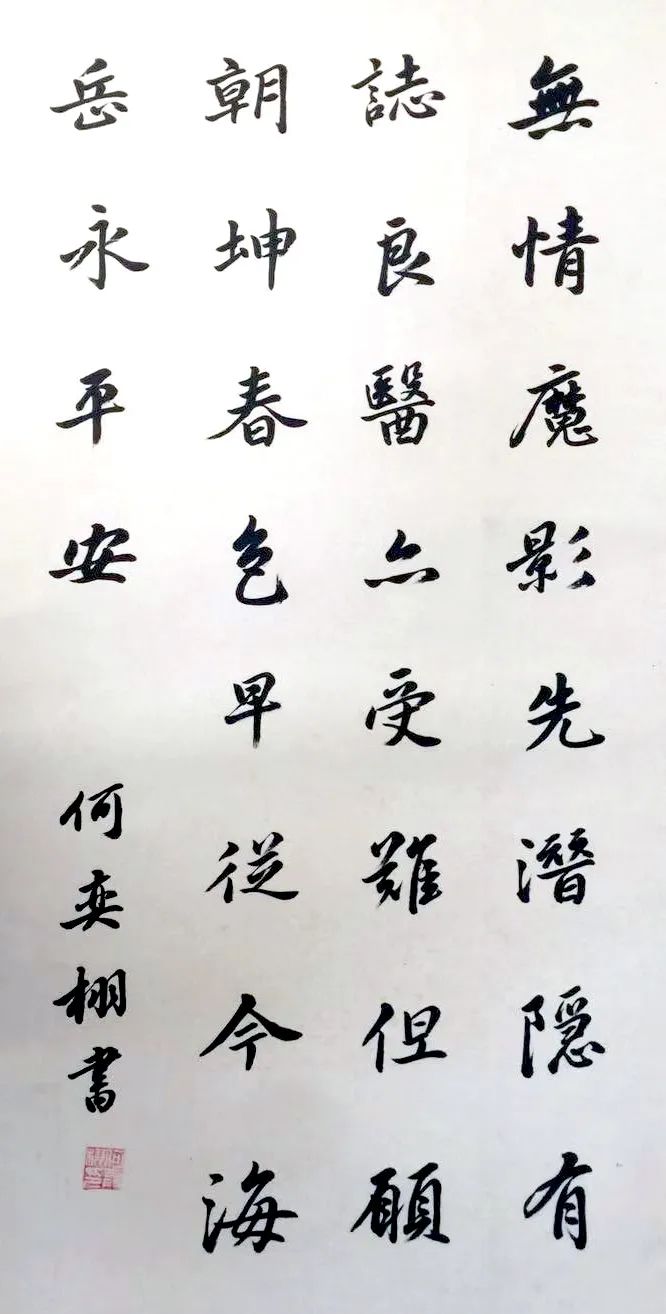 無情魔影先潛隱有
誌良醫亦受難但願
朝坤春色早從今海
岳永平安
何奕棚書